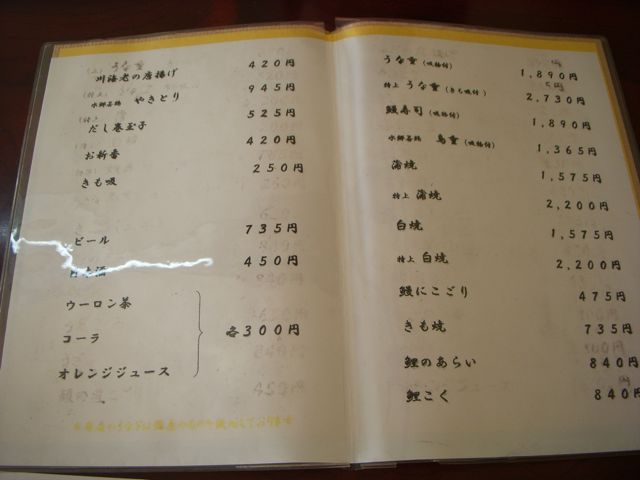 川海老の唐揚げ 420円
水郷若鶏 やきとり 945円
だし巻玉子 525円
お新香 420円
きも吸 250円
ビール 735円
450円
ウーロン茶
コーラ 各300円
オレンジジュース
うな重(吸物付) 1,890円
特上 うな重(きも吸付) 2,730円
鰻寿司(吸物付) 1,890円
水郷若鶏 鳥重(吸物付) 1,365円
蒲焼 1,575円
特上 蒲焼 2,200円
白焼 1,575円
特上 白焼 2,200円
鰻にこごり 475円
きも焼 735円
鯉のあらい 840円
鯉こく 840円